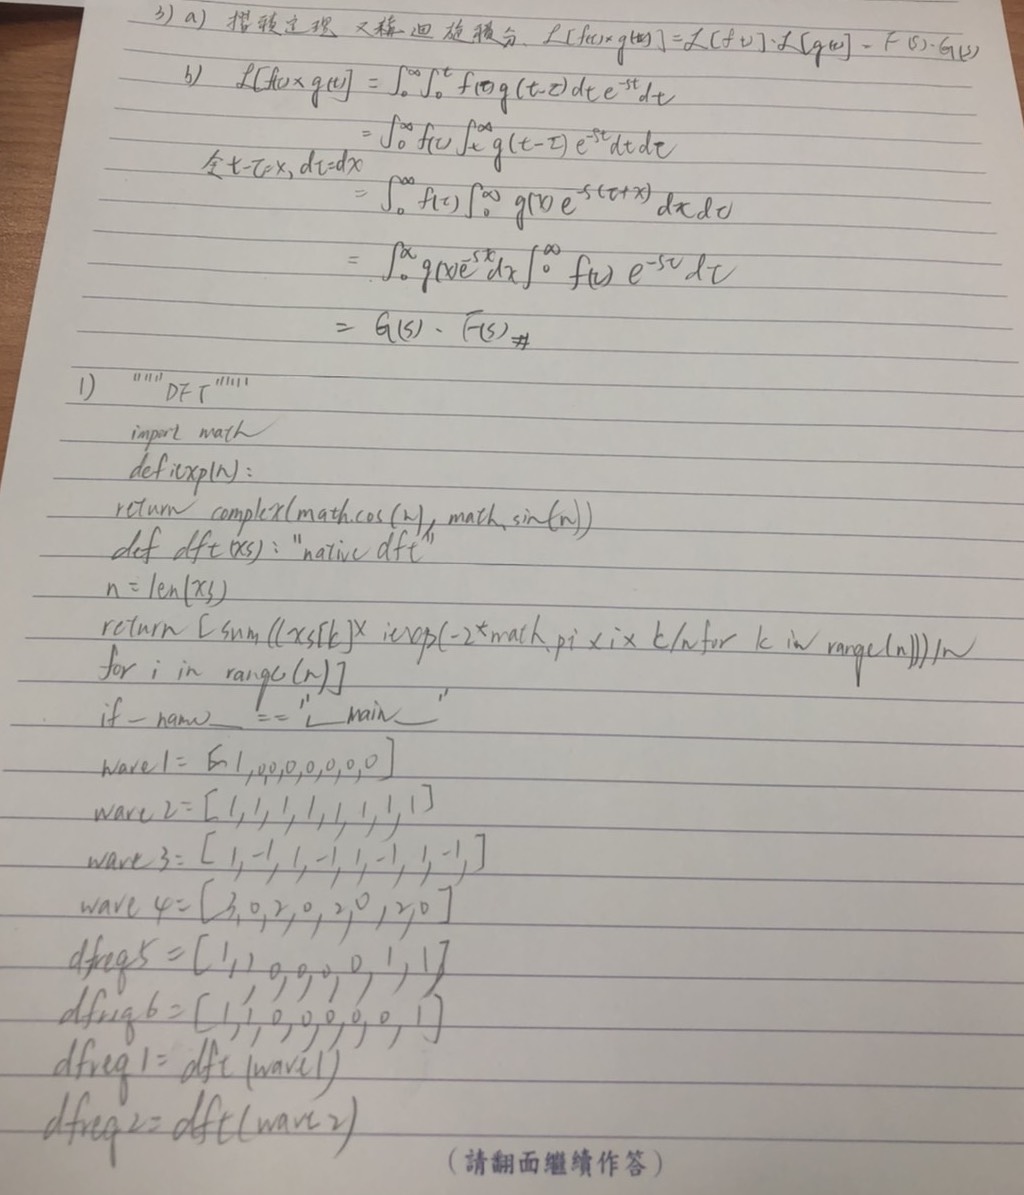 3) a) 摺積定理 又稱迴旋積分. ℒ[f(t)×g(t)]=ℒ[f(t)]·ℒ[g(t)] = F(s)·G(s)
b) ℒ[f(t)×g(t)] = ∫₀^∞∫₀^t f(τ)g(t-τ)dτe^-st dt
= ∫₀^∞ f(τ)∫τ^∞ g(t-τ)e^-st dtdτ
令t-τ=x, dt=dx
= ∫₀^∞ f(τ)∫₀^∞ g(x)e^-s(τ+x) dxdτ
= ∫₀^∞ g(x)e^-sx dx∫₀^∞ f(τ) e^-sτ dτ
= G(s) · F(s)#
1) """DFT"""
import math
def iexp(n):
return complex(math.cos(n), math.sin(n))
def dft(xs): "native dft"
n=len(xs)
return [sum((xs[k]× iexp(-2*math.pi×i×k/n for k in range(n)))/n
for i in range(n)]
if _name__ == "__main__"
wave1= [1,0,0,0,0,0,0,0]
wave 2= [1,1,1,1,1,1,1,1]
wave 3= [1,-1,1,-1,1,-1,1,-1,]
wave 4=[3,0,2,0,2,0,2,0]
dfreq5 =[1,1,0,0,0,0,1,1]
dfreq6 =[1,1,0,0,0,0,0,1]
dfreq1= dft(wave1)
dfreq2= dft(wave2)
(請翻面繼續作答)